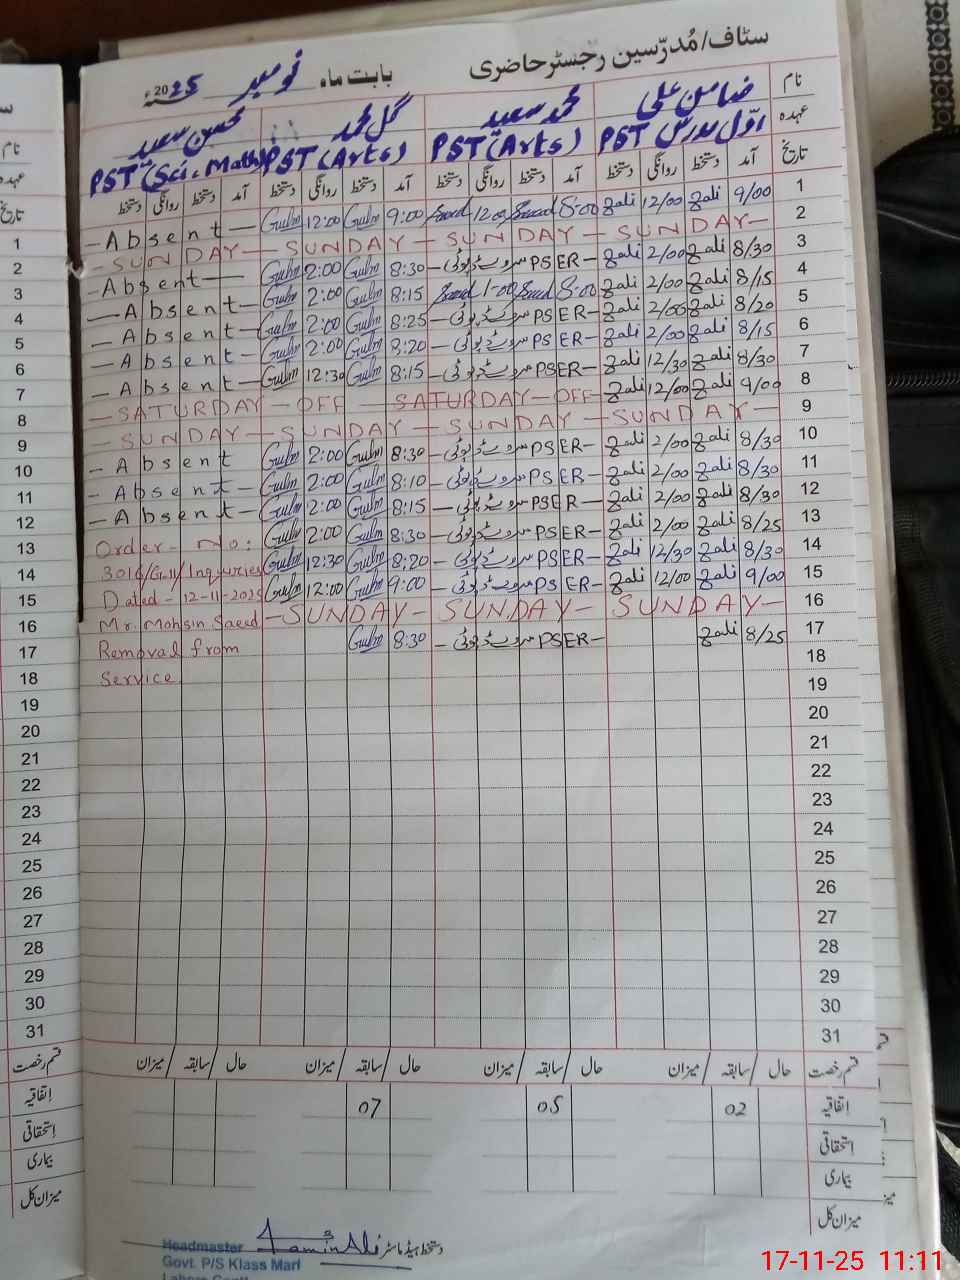 سٹاف/مُدرّسین رجسٹر حاضری بابت ماہ نومبر 2025ء
نام ضامن علی محمد سعید گل محمد محسن سعید
عہدہ اوّل مدرس PST PST (Arts) PST (Arts) PST (Sci, Math)
تاریخ آمد دستخط روانگی دستخط آمد دستخط روانگی دستخط آمد دستخط روانگی دستخط آمد دستخط روانگی دستخط
1 9/00 Zali 12/00 Zali 8:00 Saeed 12:00 Saeed 9:00 Gulm 12:00 Gulm — Absent —
2 — SUNDAY — SUNDAY — SUNDAY — SUNDAY —
3 8/30 Zali 2/00 Zali — سروے ڈیوٹی PSER — 8:30 Gulm 2:00 Gulm Absent —
4 8/15 Zali 2/00 Zali 8:00 Saeed 1:00 Saeed 8:15 Gulm 2:00 Gulm — Absent —
5 8/20 Zali 2/00 Zali — سروے ڈیوٹی PSER — 8:25 Gulm 2:00 Gulm — Absent —
6 8/15 Zali 2/00 Zali — سروے ڈیوٹی PSER — 8:20 Gulm 2:00 Gulm — Absent —
7 8/30 Zali 12/30 Zali — سروے ڈیوٹی PSER — 8:15 Gulm 12:30 Gulm — Absent —
8 9/00 Zali 12/00 Zali — SATURDAY — OFF — SATURDAY — OFF —
9 — SUNDAY — SUNDAY — SUNDAY — SUNDAY —
10 8/30 Zali 2/00 Zali — سروے ڈیوٹی PSER — 8:30 Gulm 2:00 Gulm — Absent
11 8/30 Zali 2/00 Zali — سروے ڈیوٹی PSER — 8:10 Gulm 2:00 Gulm — Absent
12 8/30 Zali 2/00 Zali — سروے ڈیوٹی PSER — 8:15 Gulm 2:00 Gulm — Absent —
13 8/25 Zali 2/00 Zali — سروے ڈیوٹی PSER — 8:30 Gulm 2:00 Gulm Order — No:
14 8/30 Zali 12/30 Zali — سروے ڈیوٹی PSER — 8:20 Gulm 12:30 Gulm 3016/G-II/Inquiries
15 9/00 Zali 12/00 Zali — سروے ڈیوٹی PSER — 9:00 Gulm 12:00 Gulm Dated - 12-11-2025
16 — SUNDAY — SUNDAY — SUNDAY — Mr. Mohsin Saeed
17 8/25 Zali — سروے ڈیوٹی PSER — 8:30 Gulm Removal from
18 Service
19
20
21
22
23
24
25
26
27
28
29
30
31
قسم رخصت حال / سابقہ / میزان حال / سابقہ / میزان حال / سابقہ / میزان حال / سابقہ / میزان
اتفاقیہ 02 05 07
استحقاقی
بیماری
میزان کل
دستخط ہیڈ ماسٹر
Zamin Ali
Headmaster
Govt. P/S Klass Mari
Lahore Cantt
نام
عہدہ
تاریخ
1
2
3
4
5
6
7
8
9
10
11
12
13
14
15
16
17
18
19
20
21
22
23
24
25
26
27
28
29
30
31
قسم رخصت
اتفاقیہ
استحقاقی
بیماری
میزان کل
17-11-25 11:11